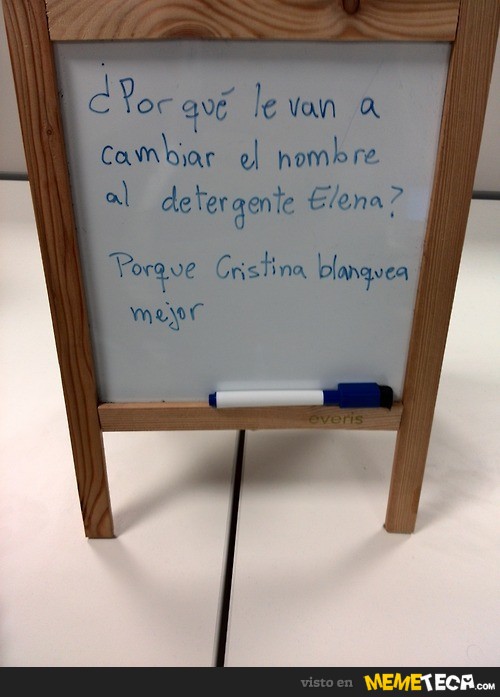 ¿Por qué le van a
cambiar el nombre
al detergente Elena?
Porque Cristina blanquea
mejor
everis
visto en MEMETECA.COM